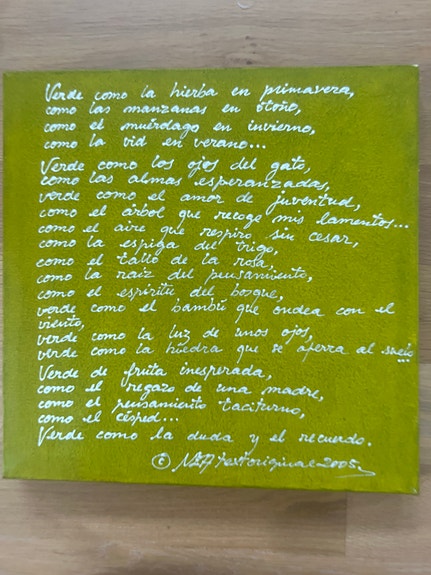 Verde como la hierba en primavera,
como las manzanas en otoño,
como el muérdago en invierno,
como la vid en verano...
Verde como los ojos del gato,
como las almas esperanzadas,
verde como el amor de juventud,
como el árbol que recoge mis lamentos...
como el aire que respiro sin cesar,
como la espiga del trigo,
como el tallo de la rosa,
como la raíz del pensamiento,
como el espíritu del bosque,
verde como el bambú que ondea con el
viento,
verde como la luz de unos ojos,
verde como la hiedra que se aferra al suelo...
Verde de fruta inesperada,
como el regazo de una madre,
como el pensamiento taciturno,
como el césped...
Verde como la duda y el recuerdo.
© text original 2005.